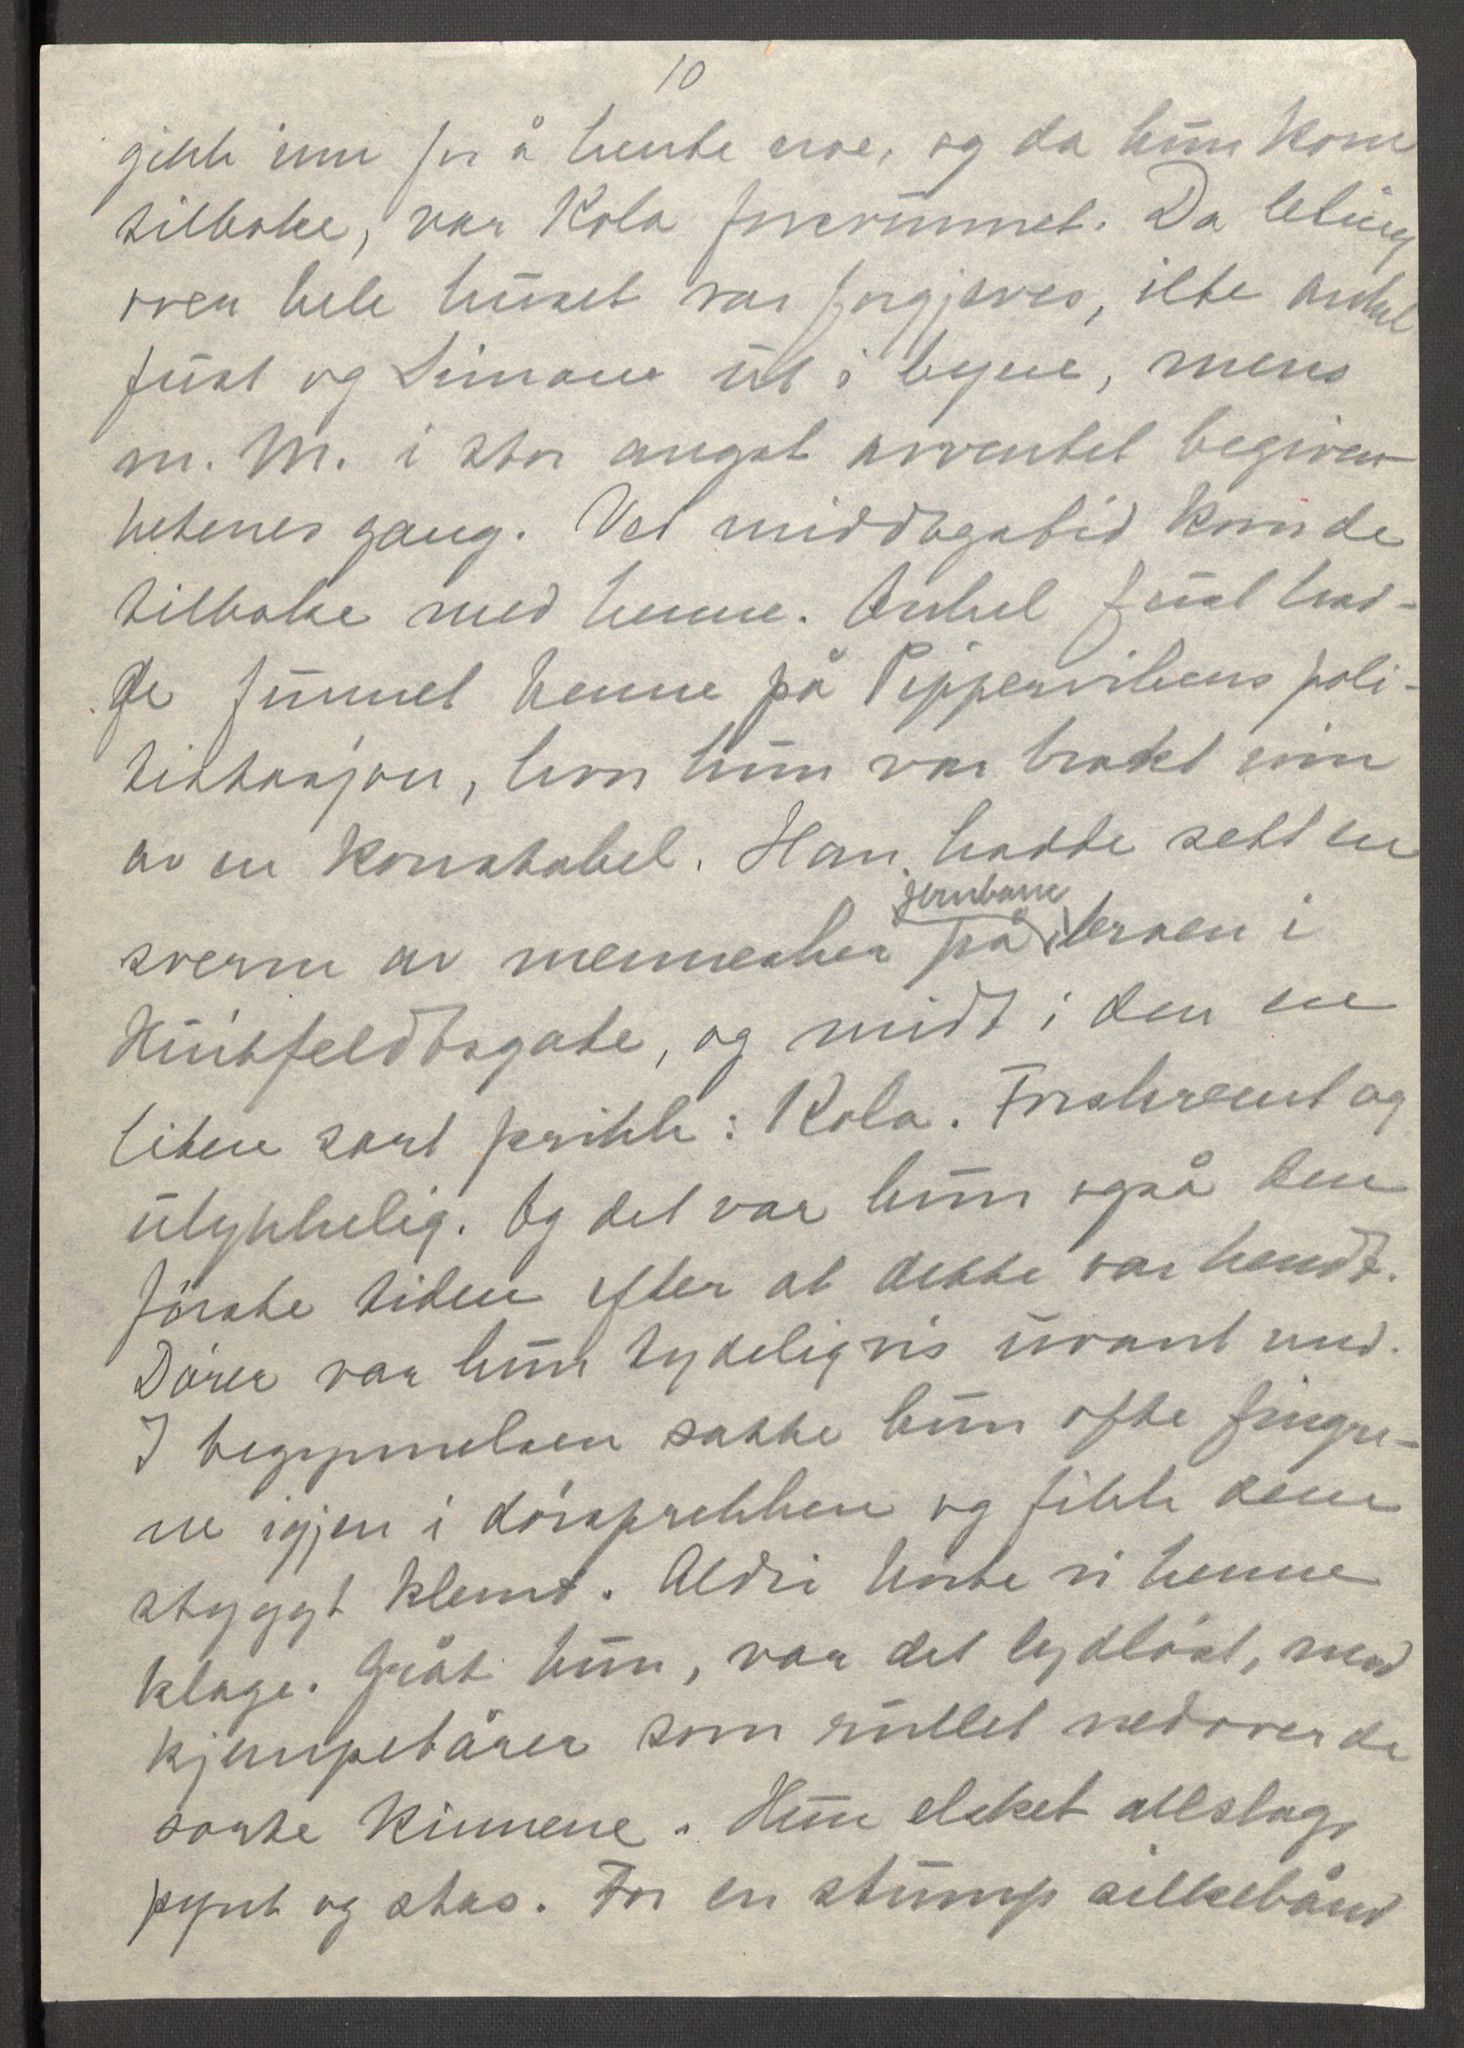 10
gikk inn for å hente noe, og da hun kom
tilbake, var Kola forsvunnet. Da leting
over hele huset var forgjeves, ilte onkel
Just og Simone ut i byen, mens
m. M. i stor angst avventet begiven-
hetenes gang. Ved middagstid kom de
tilbake med henne. Onkel Just had-
de funnet henne på Pippervikens poli-
tistasjon, hvor hun var brakt inn
av en konstabel. Han hadde sett en
jernbane
sverm av mennesker på broen i
Huitfeldtsgate, og midt i den en
liten sort prikk: Kola. Forskremt og
ulykkelig. Og det var hun også den
første tiden efter at dette var hendt.
Dører var hun tydeligvis uvant med.
I begynnelsen satte hun ofte fingre-
ne igjen i dörsprekken og fikk dem
stygt klemt. Aldri hørte vi henne
klage. Gråt hun, var det lydløst, med
kjempetårer som rullet nedover de
sorte kinnene. Hun elsket allslags
pynt og stas. For en stump silkebånd